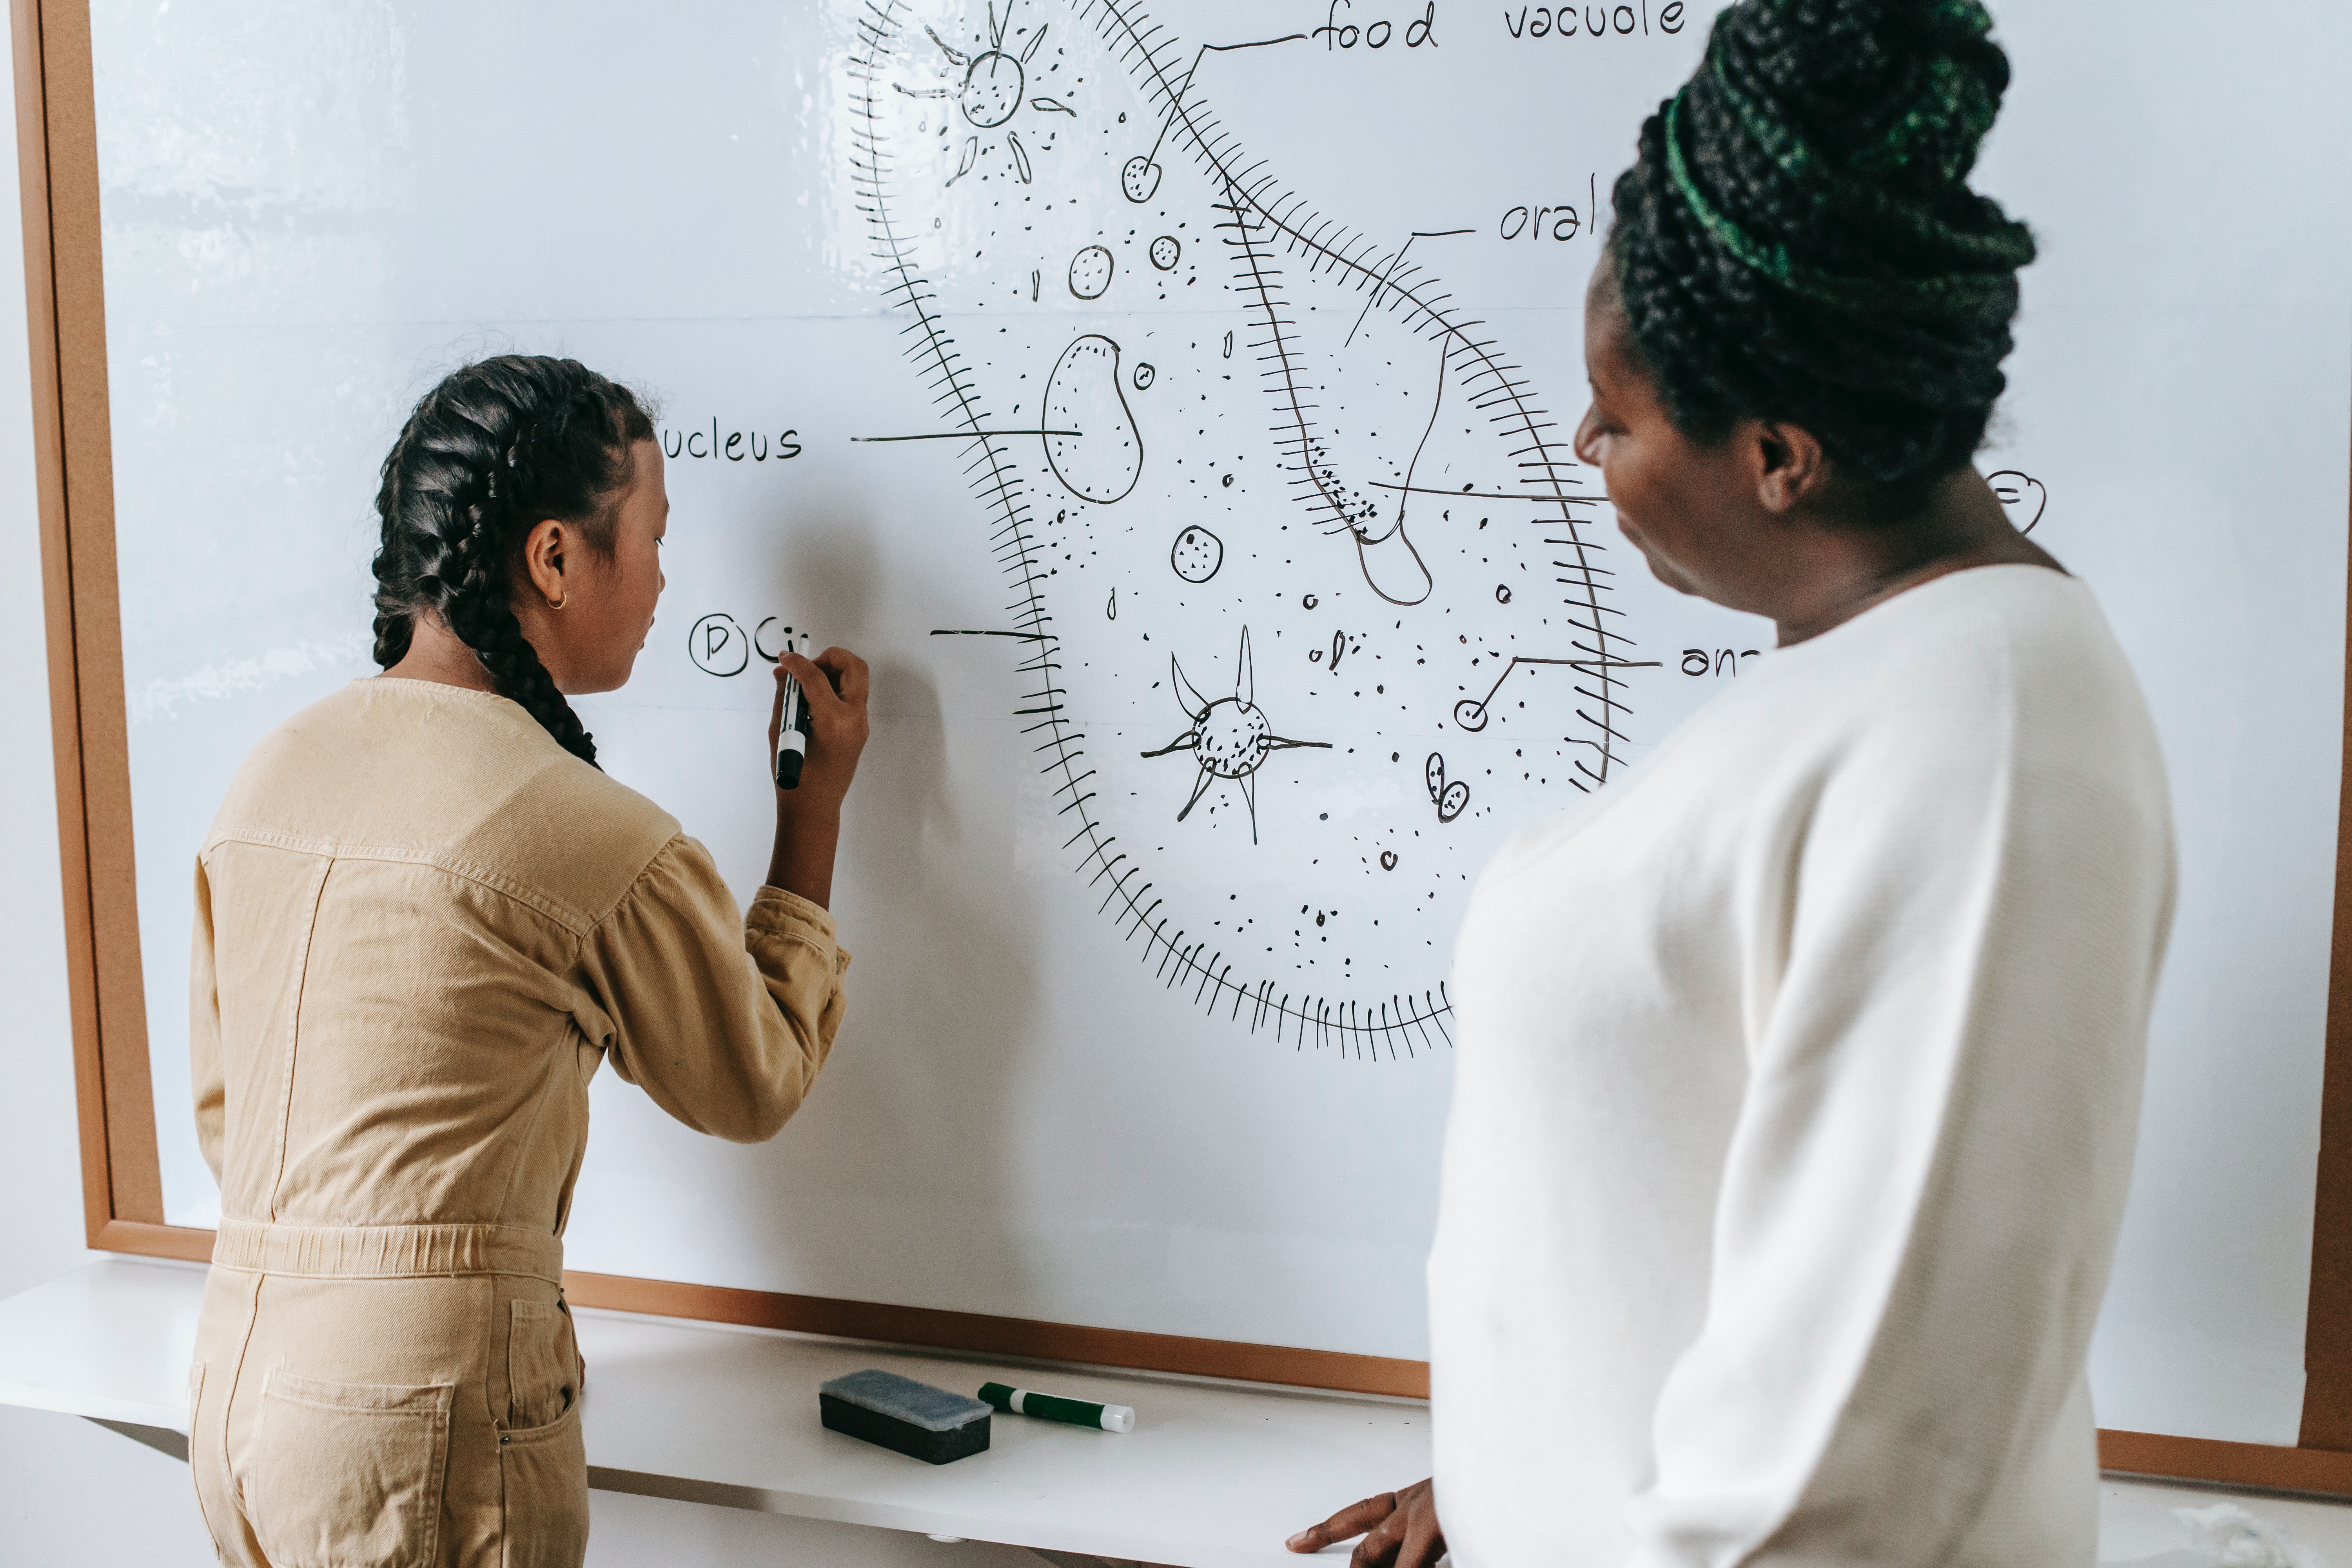 food vacuole
oral
ucleus
E
D Ci
an